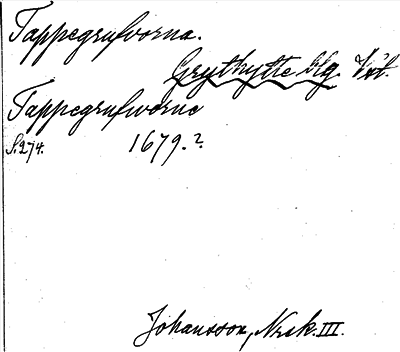 Tappegrufvorna.
Grythytte blg. Vstl.
Tappegrufworne
S. 274. 1679.?
Johansson, Norsk. III.